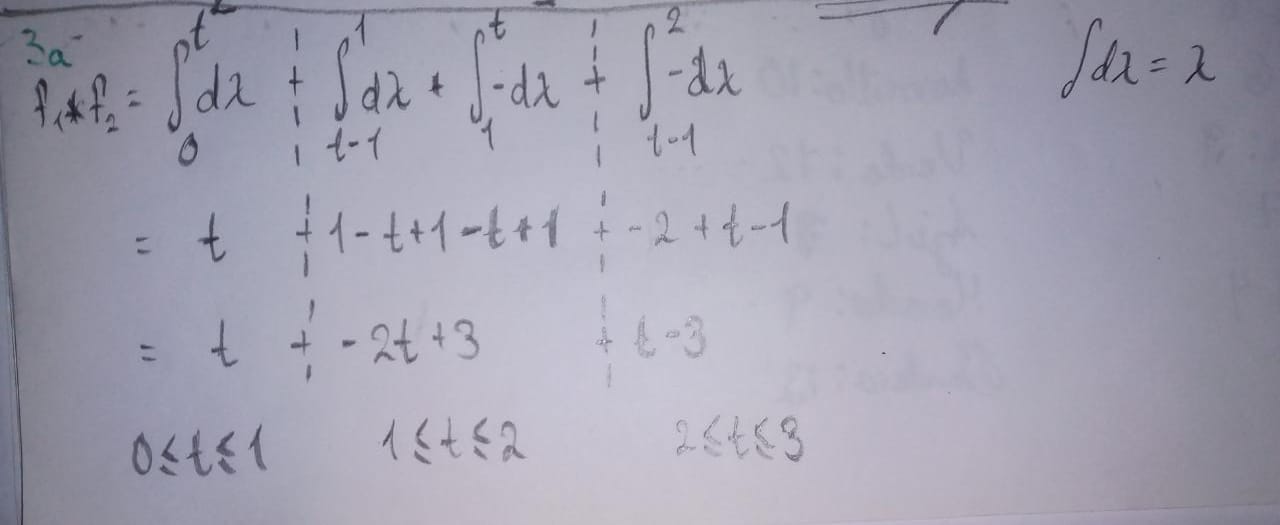 3a
f₁*f₂ = ∫₀ᵗ dλ + ∫ₜ₋₁¹ dλ + ∫₁ᵗ -dλ + ∫ₜ₋₁² -dλ ∫dλ = λ
= t + 1-t+1-t+1 + -2+t-1
= t + -2t+3 + t-3
0≤t≤1 1≤t≤2 2≤t≤3